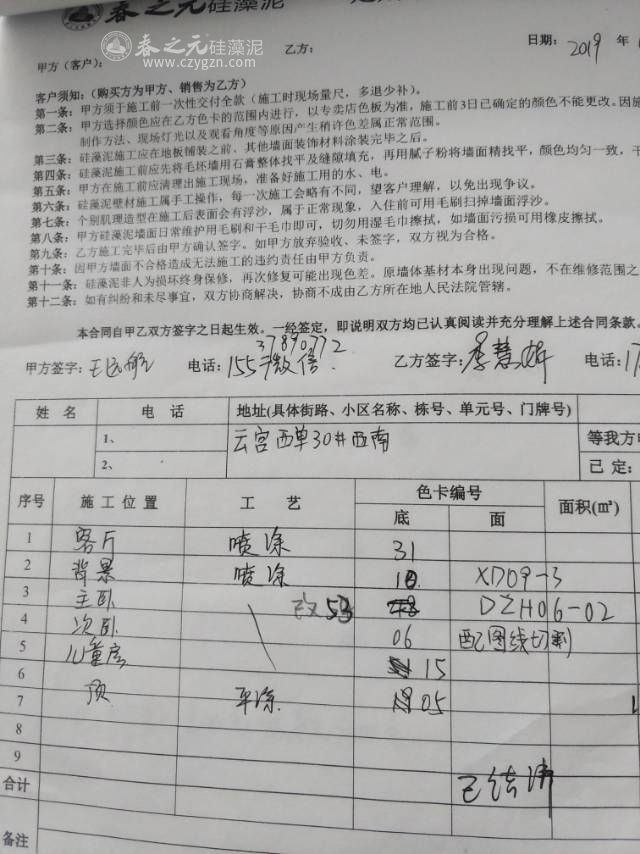 春之元硅藻泥
春之元硅藻泥
www.czygzn.com
日期： 2019 年
甲方（客户）： 乙方：
客户须知：（购买方为甲方、销售为乙方）
第一条：甲方须于施工前一次性交付全款（施工时现场量尺，多退少补）。
第二条：甲方选择颜色应在乙方色卡的范围内进行，以专卖店色板为准，施工前3日已确定的颜色不能更改。因施
制作方法、现场灯光以及观看角度等原因产生稍许色差属正常范围。
第三条：硅藻泥施工应在地板铺装之前、其他墙面装饰材料涂装完毕之后。
第四条：硅藻泥施工前应先将毛坯墙用石膏整体找平及缝隙填充，再用腻子粉将墙面精找平，颜色均匀一致，干
第五条：甲方在施工前应清理出施工现场，准备好施工用的水、电。
第六条：硅藻泥壁材施工属手工操作，每一次施工会略有不同，望客户理解，以免出现争议。
第七条：个别肌理造型在施工后表面会有浮沙，属于正常现象，入住前可用毛刷扫掉墙面浮沙。
第八条：甲方硅藻泥墙面日常维护用毛刷和干毛巾即可，切勿用湿毛巾擦拭，如墙面污损可用橡皮擦拭。
第九条：乙方施工完毕后由甲方确认签字。如甲方放弃验收、未签字，双方视为合格。
第十条：因甲方墙面不合格造成无法施工的违约责任由甲方负责。
第十一条：硅藻泥非人为损坏终身保修，再次修复可能出现色差。原墙体基材本身出现问题，不在维修范围之
第十二条：如有纠纷和未尽事宜，双方协商解决，协商不成由乙方所在地人民法院管辖。
本合同自甲乙双方签字之日起生效。一经签定，即说明双方均已认真阅读并充分理解上述合同条款。
37890772
甲方签字： 电话：155 微信 乙方签字：李慧 电话：17
姓 名 电 话 地址(具体街路、小区名称、栋号、单元号、门牌号)
1、 云宫西单30#西南 等我方电
2、 已 定：
序号 施工位置 工 艺 色卡编号 面积(m²)
底 面
1 客厅 喷涂 31
2 背景 喷涂 10 XD09-3
3 主卧 改53 DZH06-02
4 次卧 06 配图线切割
5 儿童房
6 15
7 顶 平涂 05
8
9
合计
备注